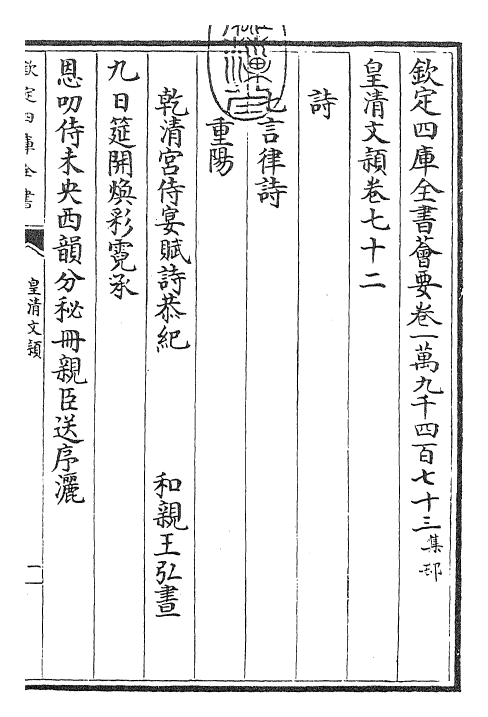 欽定四庫全書薈要卷一萬九千四百七十三 集部
皇清文穎卷七十二
詩
七言律詩
重陽
乾清宮侍宴賦詩恭紀 和親王弘晝
九日筵開煥彩霓承
恩叨侍未央西韻分秘冊親臣送序灑
欽定四庫全書 皇清文穎 一